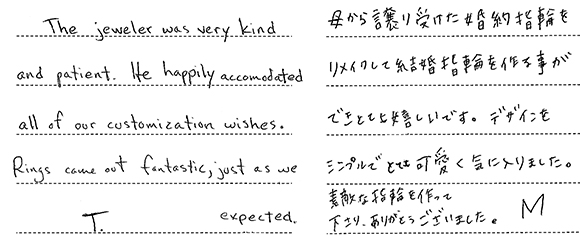 The jeweler was very kind
and patient. He happily accomodated
all of our customization wishes.
Rings came out fantastic, just as we
expected.
T.
母から譲り受けた婚約指輪を
リメイクして結婚指輪を作る事が
できとても嬉しいです。デザインを
シンプルでとても可愛く気に入りました。
素敵な指輪を作って
下さり、ありがとうございました。
M